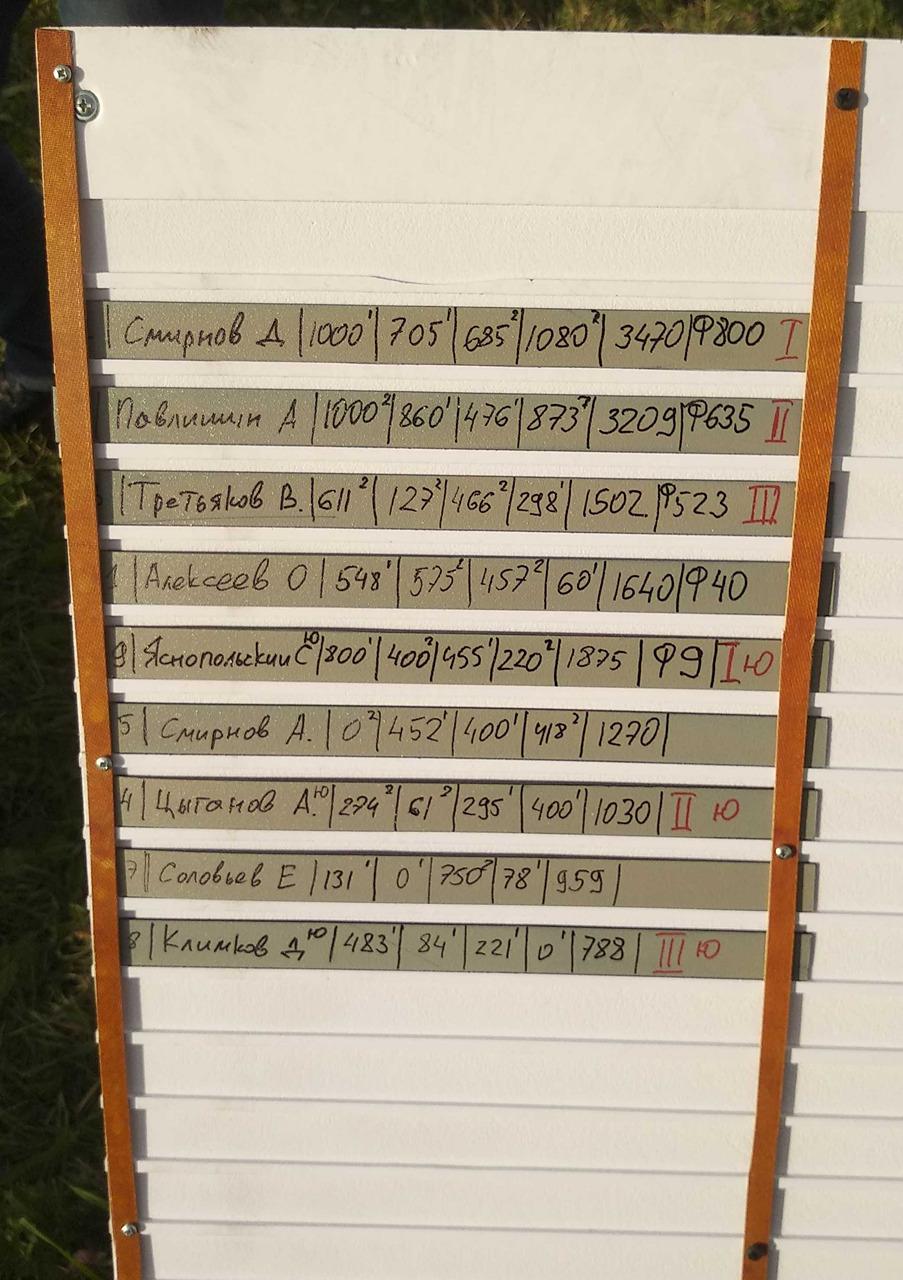 | Смирнов Д |1000¹| 705¹| 685²|1080²| 3470|Ф800 I
Павлишин А |1000²|860¹|476¹|873⁷|3209|Ф635 II
|Третьяков В.|611²| 127²|466²|298¹| 1502|Ф523 III
|Алексеев О |548¹| 575²|457²|60¹|1640|Ф40
9|Яснопольский С Ю|800¹|400²|455¹|220²|1875 |Ф9|I Ю
5| Смирнов А. |0²|452¹|400¹|418²|1270|
4|Цыганов А. Ю|274²|61²|295¹|400¹|1030|II Ю
7| Соловьев Е |131¹| 0¹|750²|78¹|959|
8|Климков Д Ю|483¹| 84¹|221¹|0¹|788| III Ю